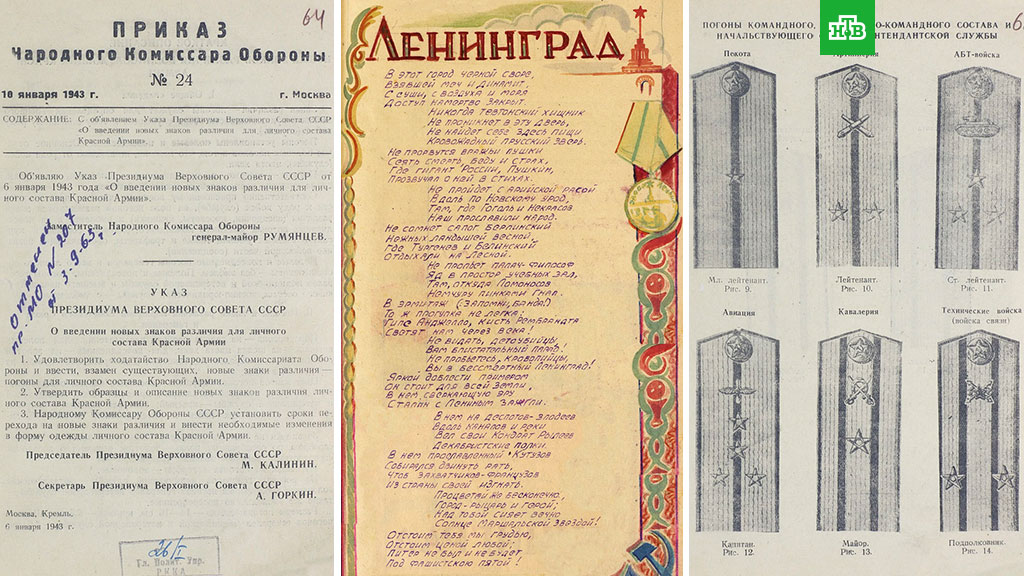 64
ПРИКАЗ
Народного Комиссара Обороны
№ 24
10 января 1943 г. г. Москва
СОДЕРЖАНИЕ: С объявлением Указа Президиума Верховного Совета СССР
«О введении новых знаков различия для личного состава
Красной Армии».
Объявляю Указ Президиума Верховного Совета СССР от
6 января 1943 года «О введении новых знаков различия для лич-
ного состава Красной Армии».
Заместитель Народного Комиссара Обороны
генерал-майор РУМЯНЦЕВ.
Отменен
пр. МО № 207
3-9-63г.
УКАЗ
ПРЕЗИДИУМА ВЕРХОВНОГО СОВЕТА СССР
О введении новых знаков различия для личного
состава Красной Армии
1. Удовлетворить ходатайство Народного Комиссариата Обо-
роны и ввести, взамен существующих, новые знаки различия—
погоны для личного состава Красной Армии.
2. Утвердить образцы и описание новых знаков различия лич-
ного состава Красной Армии.
3. Народному Комиссару Обороны СССР установить сроки пе-
рехода на новые знаки различия и внести необходимые изменения
в форму одежды личного состава Красной Армии.
Председатель Президиума Верховного Совета СССР
М. КАЛИНИН.
Секретарь Президиума Верховного Совета СССР
А. ГОРКИН.
Москва, Кремль.
6 января 1943 г.
26/I
Гл. Полит. Упр.
РККА
ЛЕНИНГРАД
В этот город черной своре,
Взявшей меч и динамит,
С суши, с воздуха и моря
Доступ намертво закрыт.
Никогда тевтонский хищник
Не проникнет в эту дверь,
Не найдет себе здесь пищи
Кровожадный прусский зверь.
Не прорвутся вражьи пушки
Сеять смерть, беду и страх,
Где гигант России, Пушкин,
Прозвучал о ней в стихах.
Не пройдет с арийской расой
Вдоль по Невскому урод,
Там, где Гоголь и Некрасов
Наш прославили народ.
Не сомнет сапог берлинский
Нежных ландышей весной,
Где Тургенев и Белинский
Отдыхали на Лесной.
Не прольет палач-философ
Яд в простор учебных зал,
Там, откуда Ломоносов
Немчуру пинками гнал.
В Эрмитаж (запомни, банда!)
То ж прогулка не легка;
Гипс Анджелло, кисть Рембрандта
Светят нам через века!
Не видать, детоубийцы,
Вам блистательный парад!
Не пробьетесь, кровопийцы,
Вы в бессмертный Ленинград!
Яркой доблести примером
Он стоит для всей земли,
В нем сверкающую эру
Сталин с Лениным зажгли.
В нем на деспотов-злодеев
Вдоль каналов и реки
Вел свои Кондрат Рылеев
Декабристские полки.
В нем прославленный Кутузов
Собирался двинуть рать,
Чтоб захватчиков-французов
Из страны своей изгнать.
Процветай же бесконечно,
Город-рыцарь и герой;
Над тобой сияет вечно
Солнце маршальской звездой!
Отстоим тебя мы грудью,
Отстоим ценой любой;
Питер не был и не будет
Под фашистскою пятой!
НТВ
6
ПОГОНЫ КОМАНДНОГО, О-КОМАНДНОГО СОСТАВА И
НАЧАЛЬСТВУЮЩЕГО ИНТЕНДАНТСКОЙ СЛУЖБЫ
Пехота
АБТ-войска
Мл. лейтенант.
Рис. 9.
Лейтенант.
Рис. 10.
Ст. лейтенант.
Рис. 11.
Авиация
Кавалерия
Технические войска
(войска связи)
Капитан.
Рис. 12.
Майор.
Рис. 13.
Подполковник.
Рис. 14.